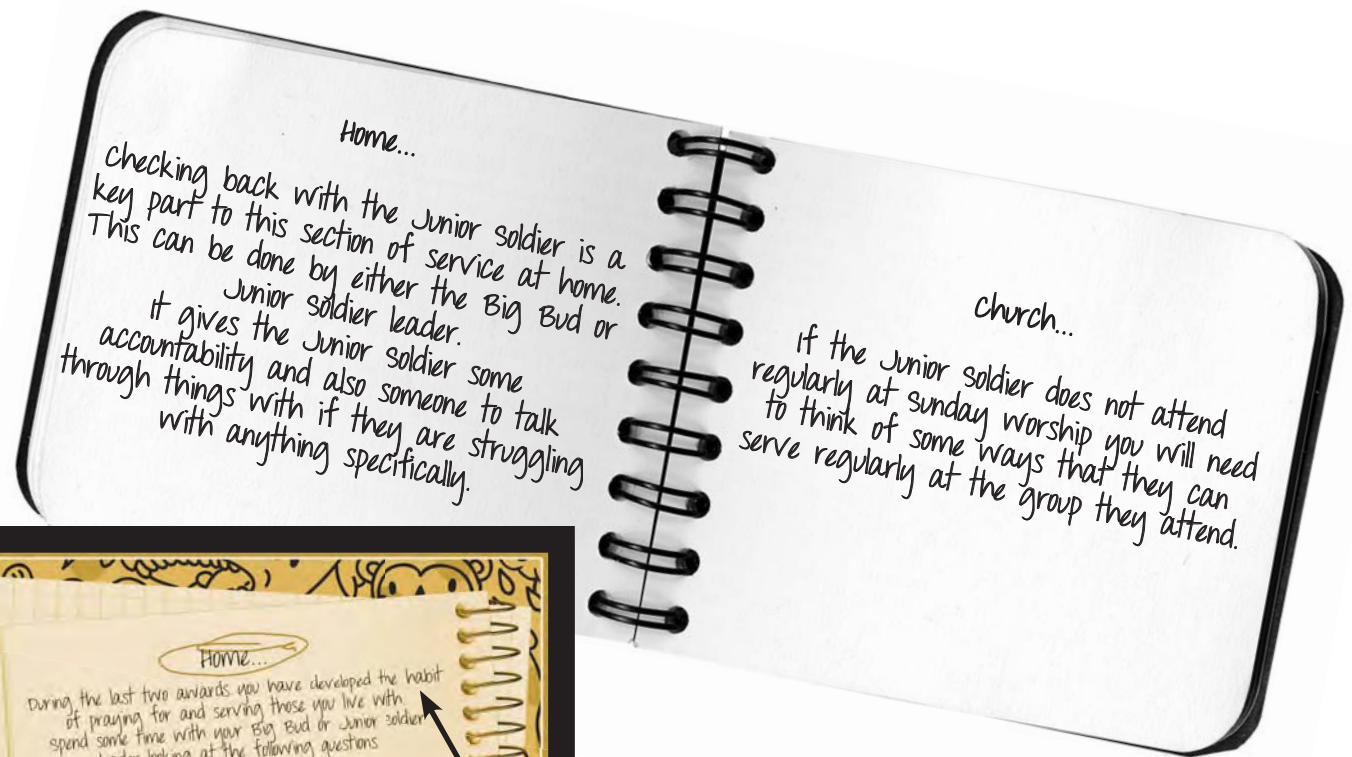 Home...
Checking back with the Junior Soldier is a
key part to this section of service at home.
This can be done by either the Big Bud or
Junior Soldier leader.
It gives the Junior Soldier some
accountability and also someone to talk
through things with if they are struggling
with anything specifically.
Church...
If the Junior Soldier does not attend
regularly at Sunday worship you will need
to think of some ways that they can
serve regularly at the group they attend.
Home...
During the last two awards you have developed the habit
of praying for and serving those you live with.
spend some time with your Big Bud or Junior Soldier
looking at the following questions